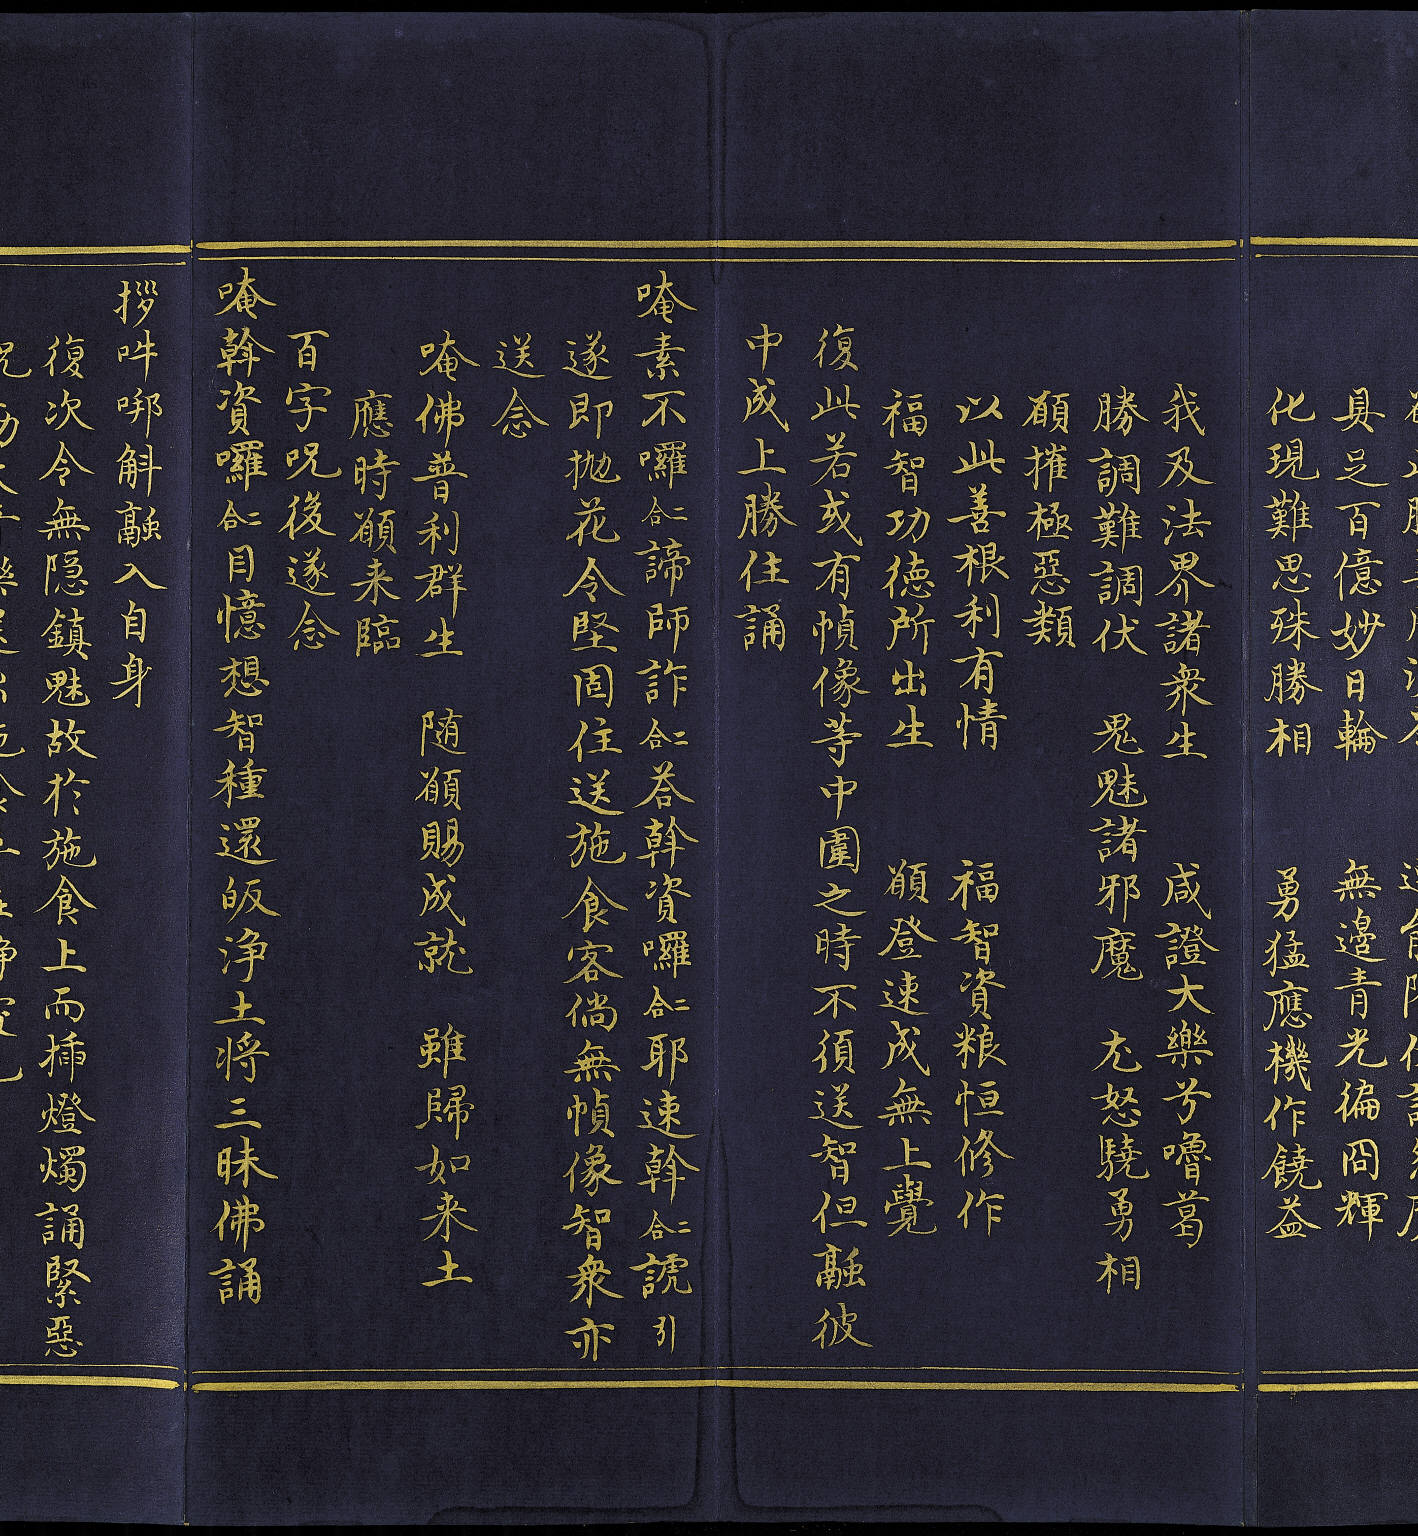 具足百億妙日輪　無邊青光徧冏輝
化現難思殊勝相　勇猛應機作饒益
我及法界諸衆生　咸證大樂兮嚕葛
勝調難調伏　鬼魅諸邪魔　尤怒驍勇相
願摧極惡類
以此善根利有情　福智資粮恒修作
福智功德所出生　願登速成無上覺
復此若或有幀像等中圍之時不須送智但融彼
中成上勝住誦
唵素不囉二合諦師詐二合荅斡資囉二合耶速斡二合謕引
遂即抛花令堅固住送施食客倘無幀像智衆亦
送念
唵佛普利群生　随願賜成就　雖歸如来土
應時願来臨
百字呪後遂念
唵斡資囉二合目憶想智種還皈浄土将三昧佛誦
拶吽㖿斛融入自身
復次令無隠鎮魅故於施食上而挿燈燭誦緊惡